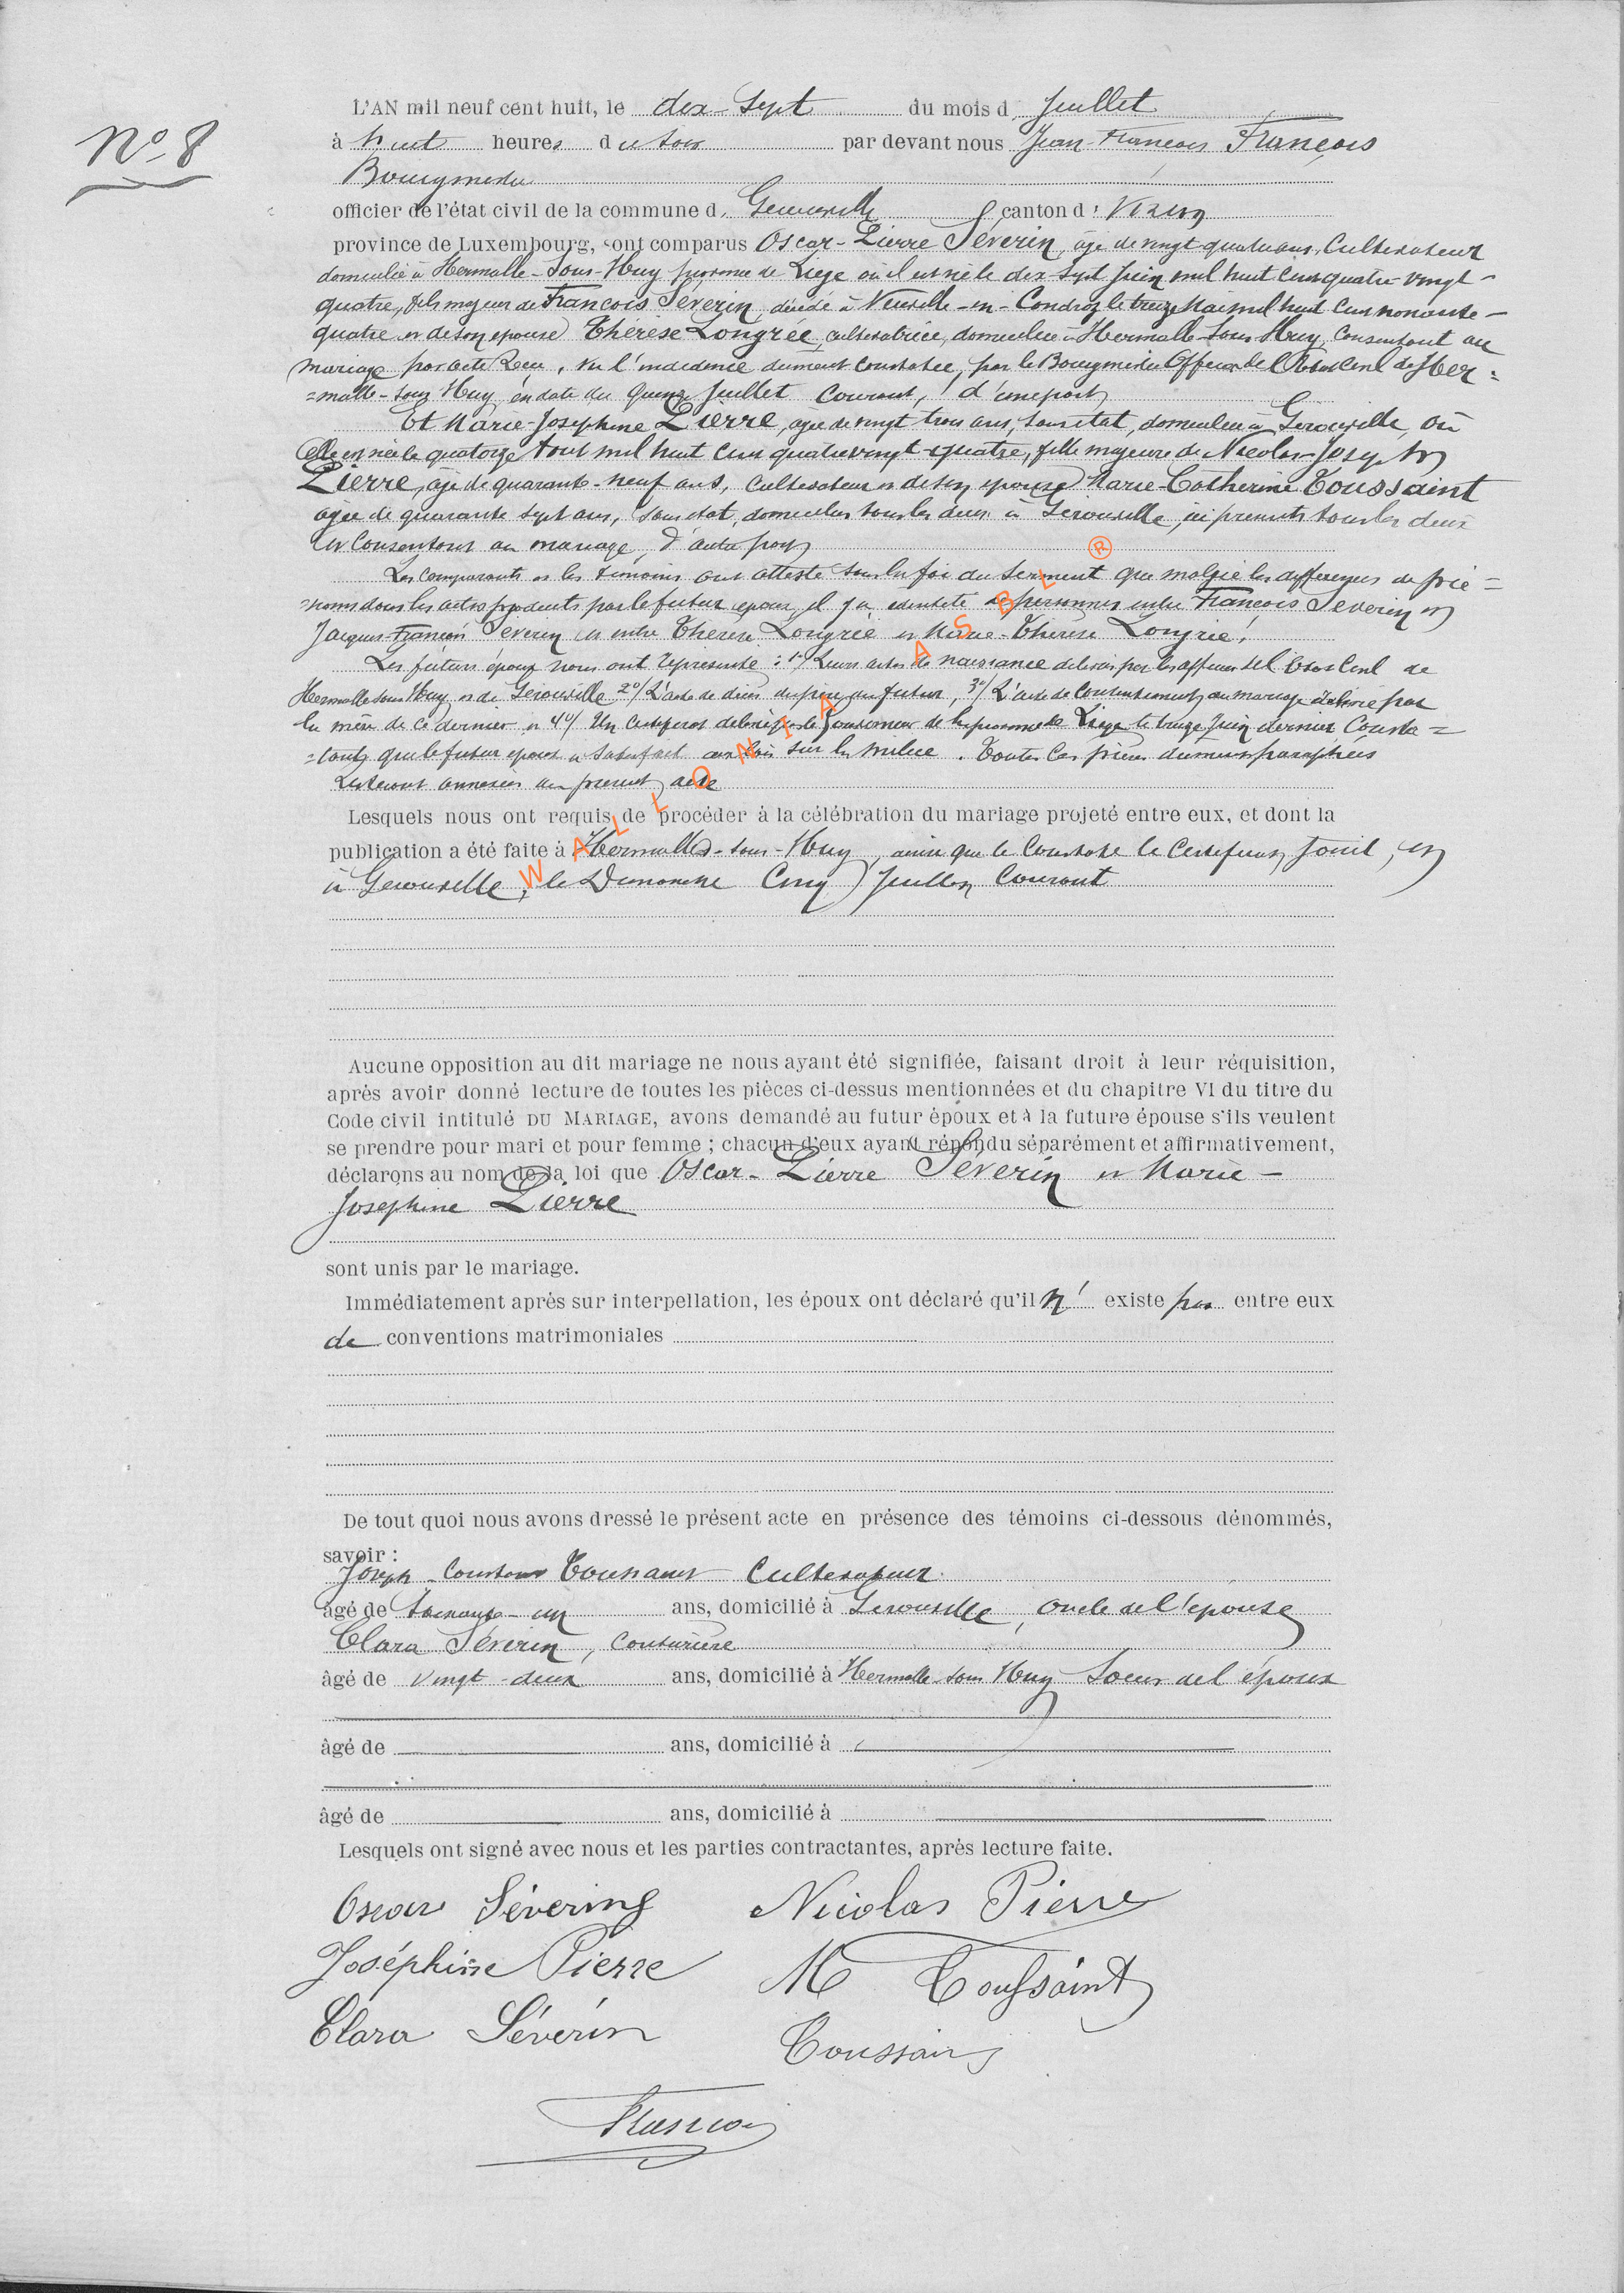 No 8
L'AN mil neuf cent huit, le dix-sept du mois d Juillet
à huit heures du soir par devant nous Jean-François François
Bourgmestre
officier de l'état civil de la commune d Gérouville canton d Virton
province de Luxembourg, sont comparus Oscar-Pierre Séverin, âgé de vingt quatre ans, Cultivateur
domicilié à Hermalle-Sous-Huy province de Liège où il est né le dix-sept Juin mil huit cent quatre-vingt-
quatre, fils majeur de François Séverin, décédé à Neuville-en-Condroz le treize Mai mil huit cent nonante-
quatre et de son épouse Thérèse Longrée, cultivatrice, domiciliée à Hermalle-Sous-Huy, Consentant au
mariage par acte Reçu, vu l'indigence dûment Constatée, par le Bourgmestre Officier de l'Etat Civil de Her=
=malle-sous Huy en date du quinze Juillet Courant, d'une part
Et Marie-Joséphine Pierre, âgée de vingt trois ans, sans état, domiciliée à Gérouville, où
Elle est née le quatorze Aout mil huit cent quatre vingt-quatre, fille majeure de Nicolas-Joseph
Pierre, âgé de quarante-neuf ans, Cultivateur et de son épouse Marie-Catherine Toussaint
agée de quarante sept ans, sans état, domiciliés tous les deux à Gérouville, ici présents tous les deux
et Consentant au mariage, d'autre part
Les Comparants et les témoins ont attesté sous la foi du Serment que malgré les différences de pré=
=noms dans les actes produits par le futur époux, il y a identité de personnes entre François Severin et
Jacques-François Séverin et entre Thérèse Longrée et Marie-Thérèse Longrée.
Les futurs époux nous ont représenté : 1°/ Leurs actes de naissance délivrés par les officiers de l'Etat Civil de
Hermalle sous Huy et de Gérouville 2°/ L'acte de décès du père du futur, 3°/ L'acte de Consentement au mariage délivré par
la mère de ce dernier et 4°/ Un Certificat délivré par le Gouverneur de la province de Liège le treize Juin dernier Consta=
=tant que le futur époux a satisfait aux lois sur la milice. Toutes les pièces dûment paraphées
resteront annexées au présent acte
Lesquels nous ont requis de procéder à la célébration du mariage projeté entre eux, et dont la
publication a été faite à Hermalle-sous-Huy, ainsi que le Constate le Certificat Joint, et
à Gérouville, le Dimanche Cinq Juillet Courant
WALLONIA ASBL ®
Aucune opposition au dit mariage ne nous ayant été signifiée, faisant droit à leur réquisition,
après avoir donné lecture de toutes les pièces ci-dessus mentionnées et du chapitre VI du titre du
Code civil intitulé DU MARIAGE, avons demandé au futur époux et à la future épouse s'ils veulent
se prendre pour mari et pour femme ; chacun d'eux ayant répondu séparément et affirmativement,
déclarons au nom de la loi que Oscar-Pierre Séverin et Marie-
Joséphine Pierre
sont unis par le mariage.
Immédiatement après sur interpellation, les époux ont déclaré qu'il n' existe pas entre eux
de conventions matrimoniales
De tout quoi nous avons dressé le présent acte en présence des témoins ci-dessous dénommés,
savoir :
Joseph-Constant Toussaint Cultivateur
âgé de soixante-un ans, domicilié à Gérouville, oncle de l'épouse
Clara Séverin, Couturière
âgé de vingt-deux ans, domicilié à Hermalle-sous Huy Soeur de l'époux
âgé de ans, domicilié à
âgé de ans, domicilié à
Lesquels ont signé avec nous et les parties contractantes, après lecture faite.
Oscar Séverin Nicolas Pierre
Joséphine Pierre M Toussaint
Clara Séverin Toussaint
François